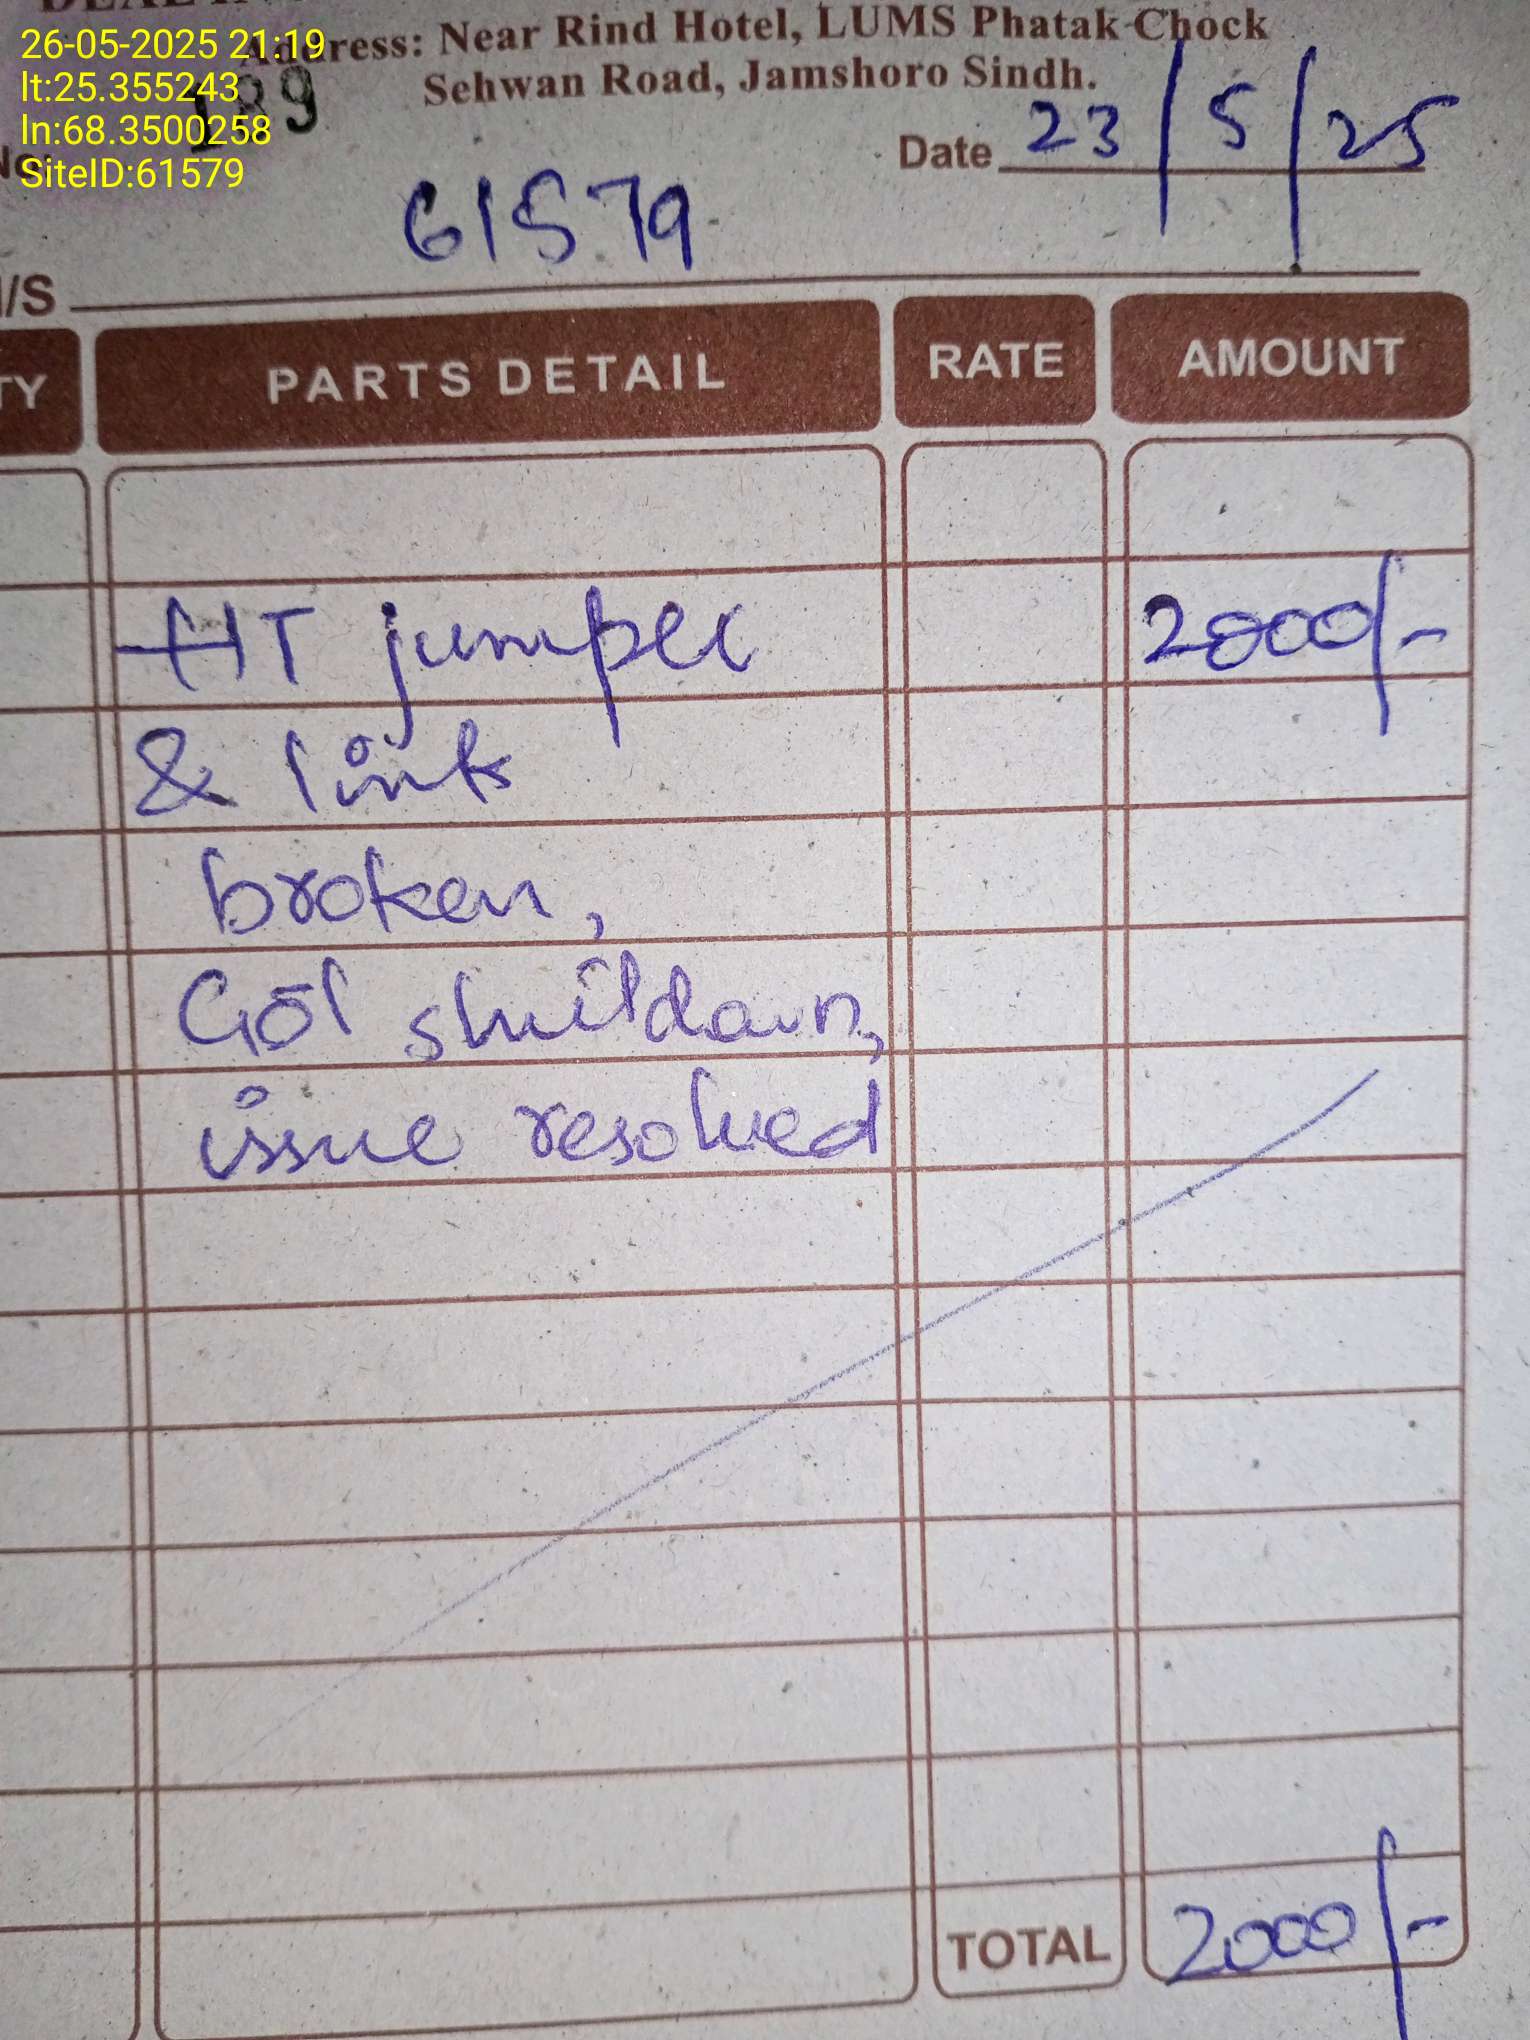 26-05-2025 21:19
Address: Near Rind Hotel, LUMS Phatak Chock
lt:25.355243
Sehwan Road, Jamshoro Sindh.
189
ln:68.3500258
Date 23/5/25
SiteID:61579
61579
M/S
PARTS DETAIL RATE AMOUNT
HT jumper 2000/-
& link
broken,
Got shutdown,
issue resolved
TOTAL 2000/-